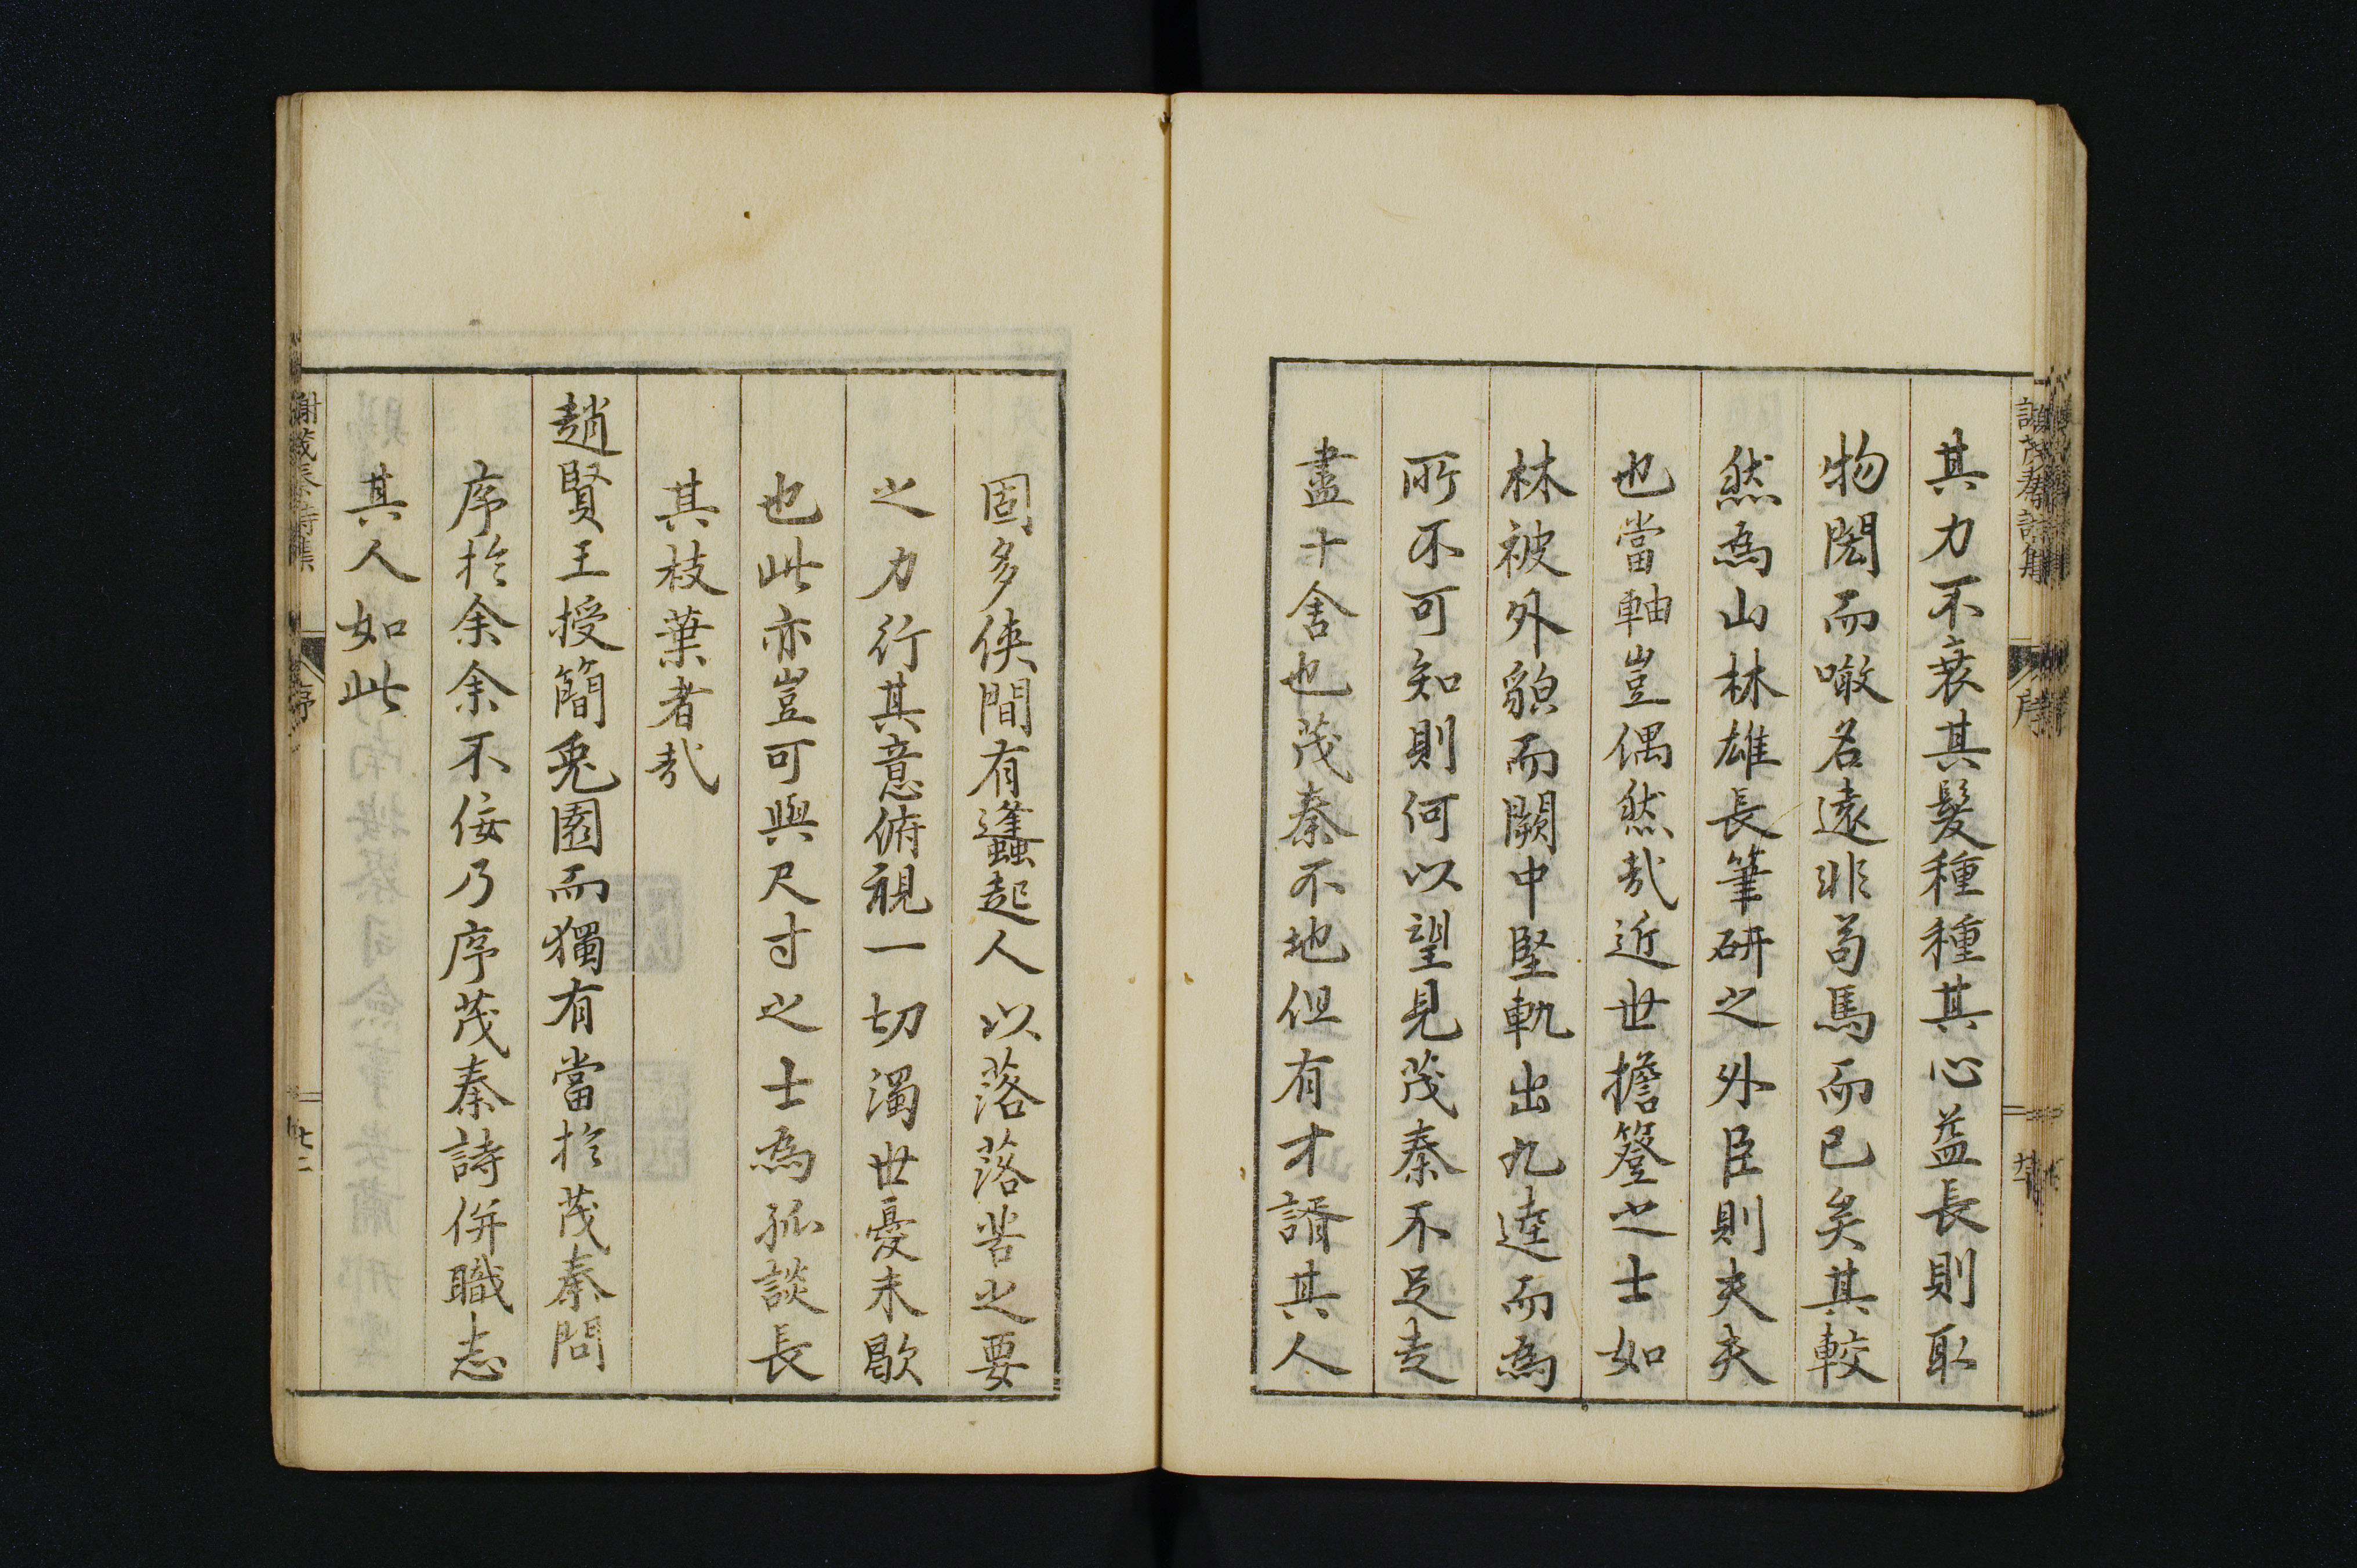 其力不衰其髮種種其心益長則取
物閎而噉名遠非苟焉而已矣其較
然為山林雄長筆研之外臣則夫夫
也當軸豈偶然哉近世擔簦之士如
林被外貌而闕中堅軌出九逵而為
所不可知則何以望見茂秦不足走
盡十舍也茂秦不地但有才諝其人
固多俠間有蠭起人以落落苦之要
之力行其意俯視一切濁世憂未歇
也此亦豈可與尺寸之士為孤談長
其枝葉者哉
趙賢王授簡兎園而獨有當於茂秦問
序於余余不佞乃序茂秦詩併職志
其人如此
謝茂秦詩集
序